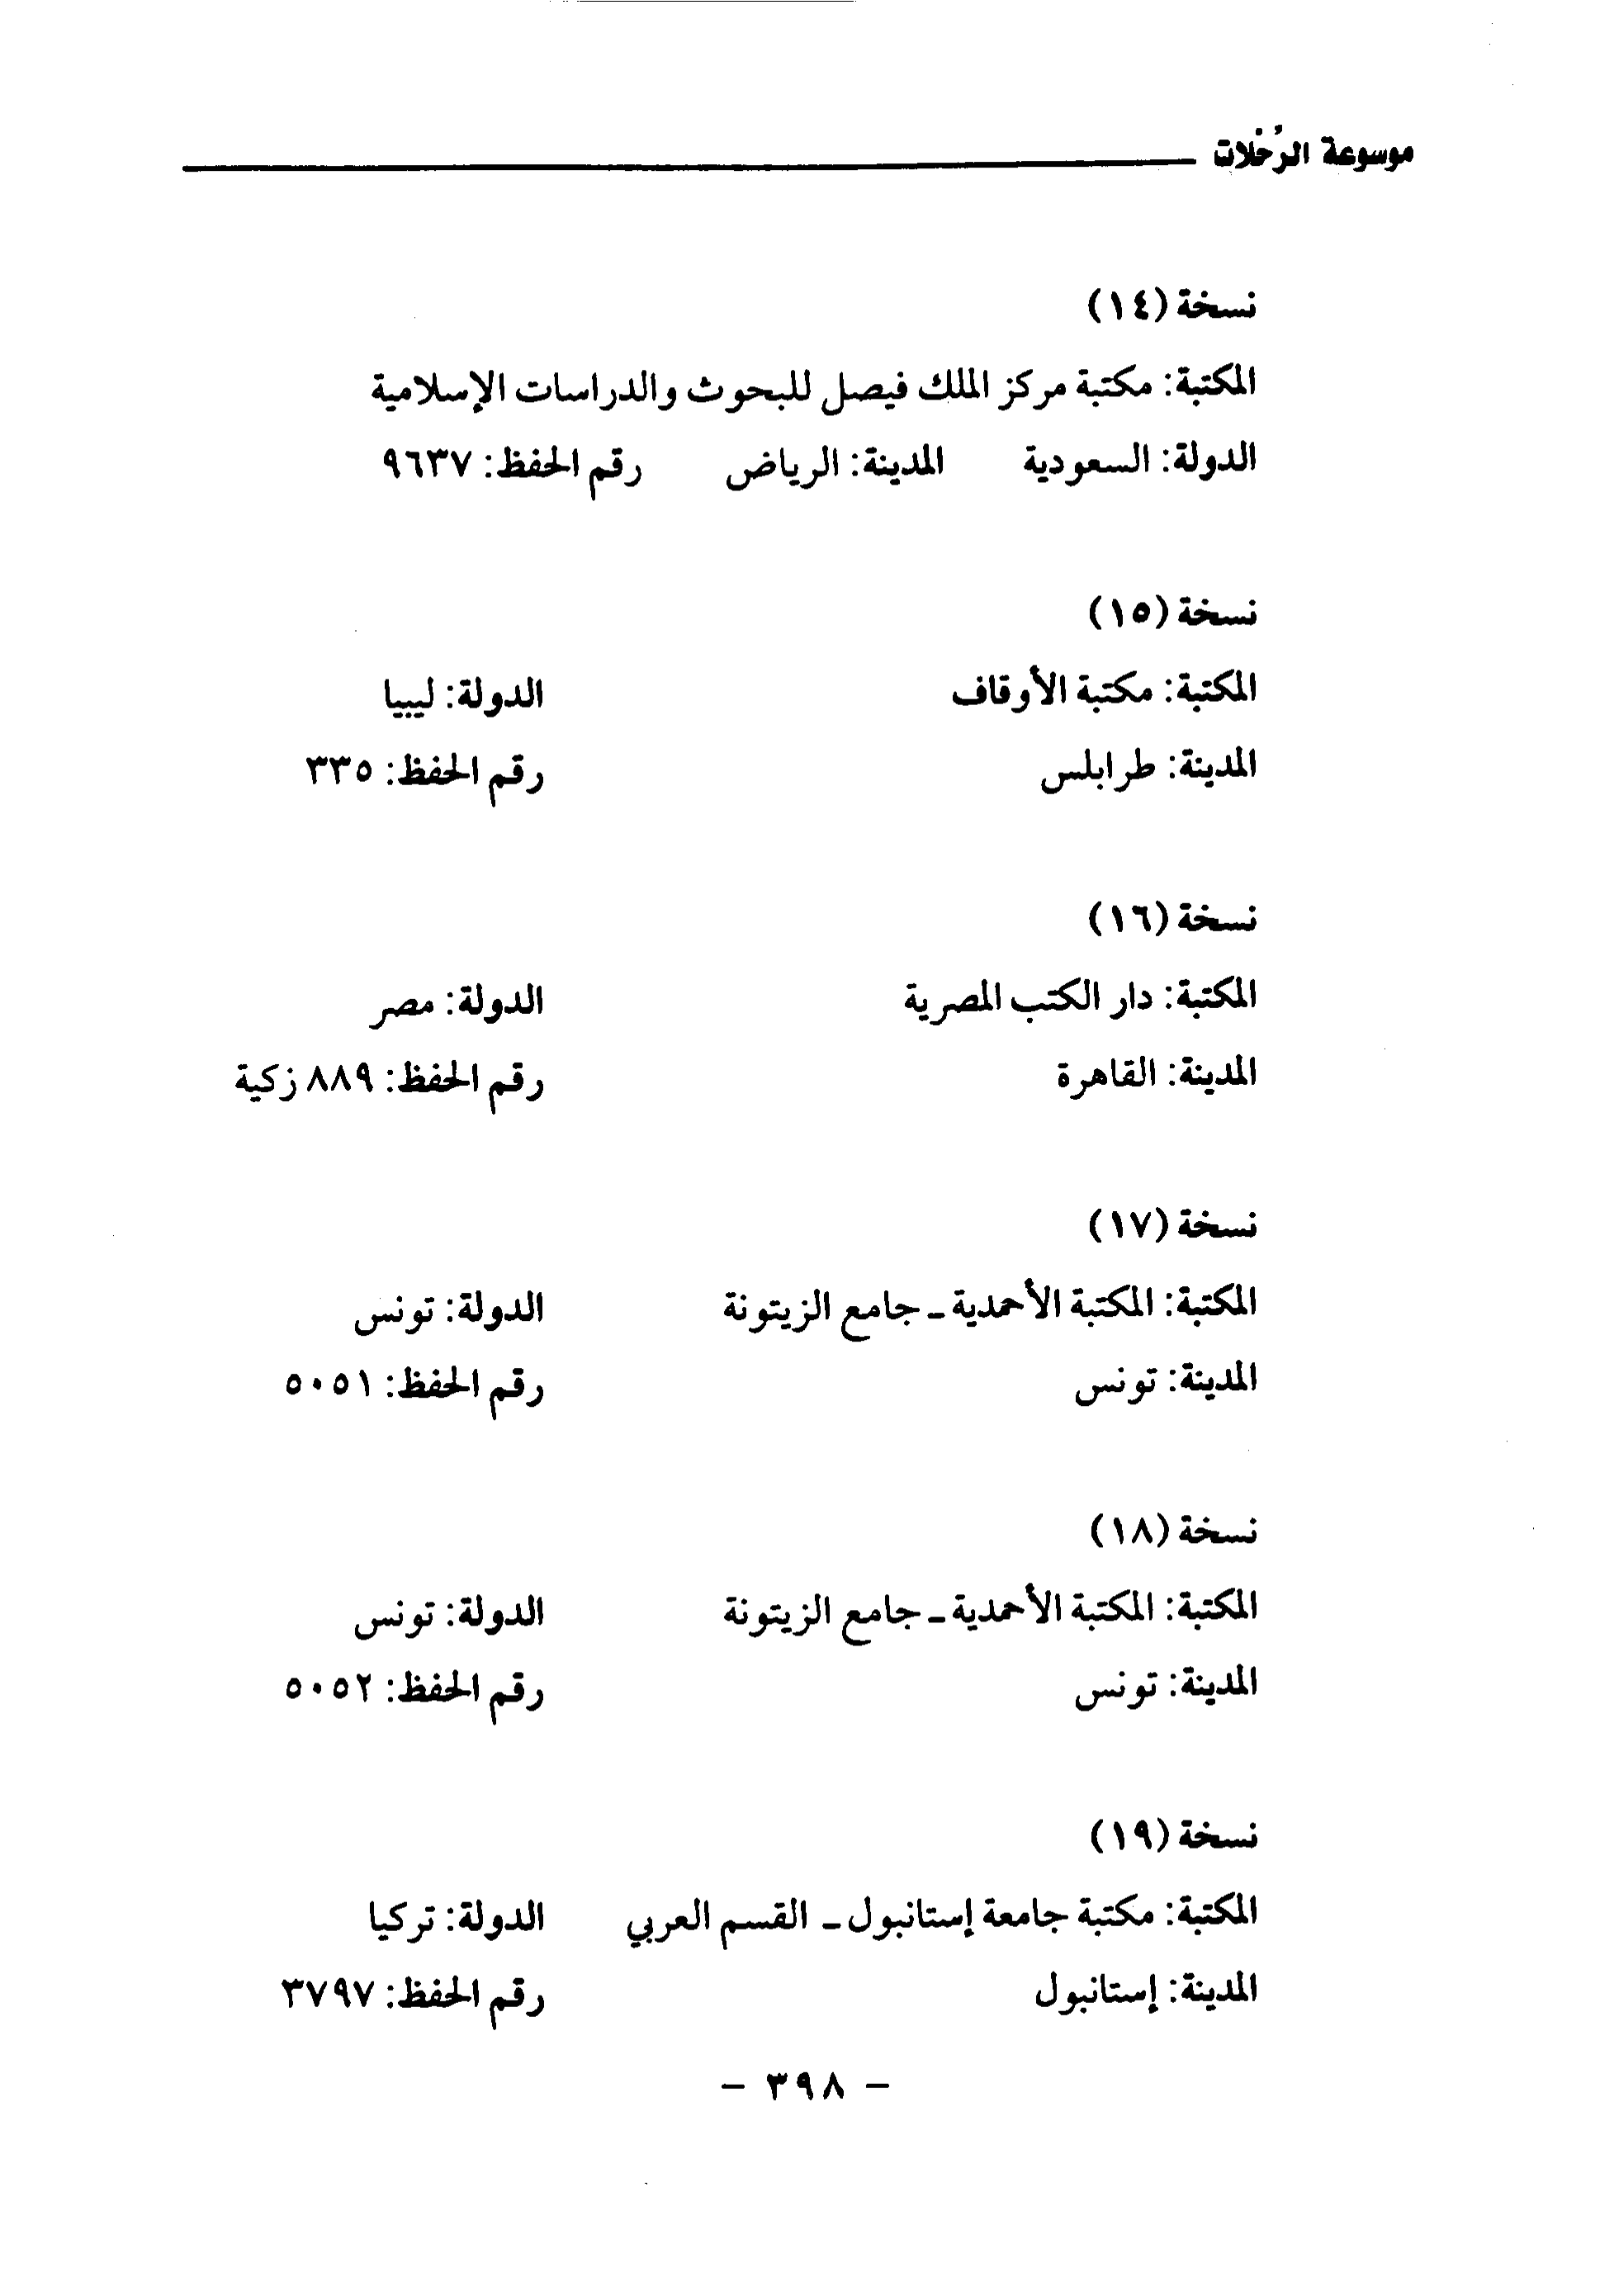 موسوعة الرحلات
نسخة (١٤)
المكتبة: مكتبة مركز الملك فيصل للبحوث والدراسات الإسلامية
الدولة: السعودية المدينة: الرياض رقم الحفظ: ٩٦٣٧
نسخة (١٥)
المكتبة: مكتبة الأوقاف الدولة: ليبيا
المدينة: طرابلس رقم الحفظ: ٣٣٥
نسخة (١٦)
المكتبة: دار الكتب المصرية الدولة: مصر
المدينة: القاهرة رقم الحفظ: ٨٨٩ زكية
نسخة (١٧)
المكتبة: المكتبة الأحمدية - جامع الزيتونة الدولة: تونس
المدينة: تونس رقم الحفظ: ٥٠٥١
نسخة (١٨)
المكتبة: المكتبة الأحمدية - جامع الزيتونة الدولة: تونس
المدينة: تونس رقم الحفظ: ٥٠٥٢
نسخة (١٩)
المكتبة: مكتبة جامعة إستانبول - القسم العربي الدولة: تركيا
المدينة: إستانبول رقم الحفظ: ٣٧٩٧
- ٣٩٨ -